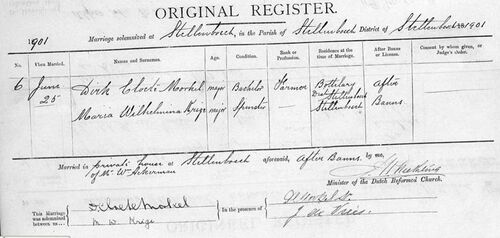 ORIGINAL REGISTER.
1901 Marriage solemnized at Stellenbosch, in the Parish of Stellenbosch District of Stellenbosch 1901
No. When Married. Names and Surnames. Age. Condition. Rank or Profession. Residence at the time of Marriage. After Banns or License. Consent by whom given, or Judge's Order.
6 June 25 Dirk Cloete Morkel major Bachelor Farmer Bottelary Dist Stellenbosch After Banns
Maria Wilhelmina Krige major Spinster Stellenbosch
Married in private house at Stellenbosch aforesaid, After Banns by me,
of Mr W Ackerman
Minister of the Dutch Reformed Church.
This Marriage was solemnized between us,
D Cloete Morkel
M W Krige
In the presence of
J. de Vries.